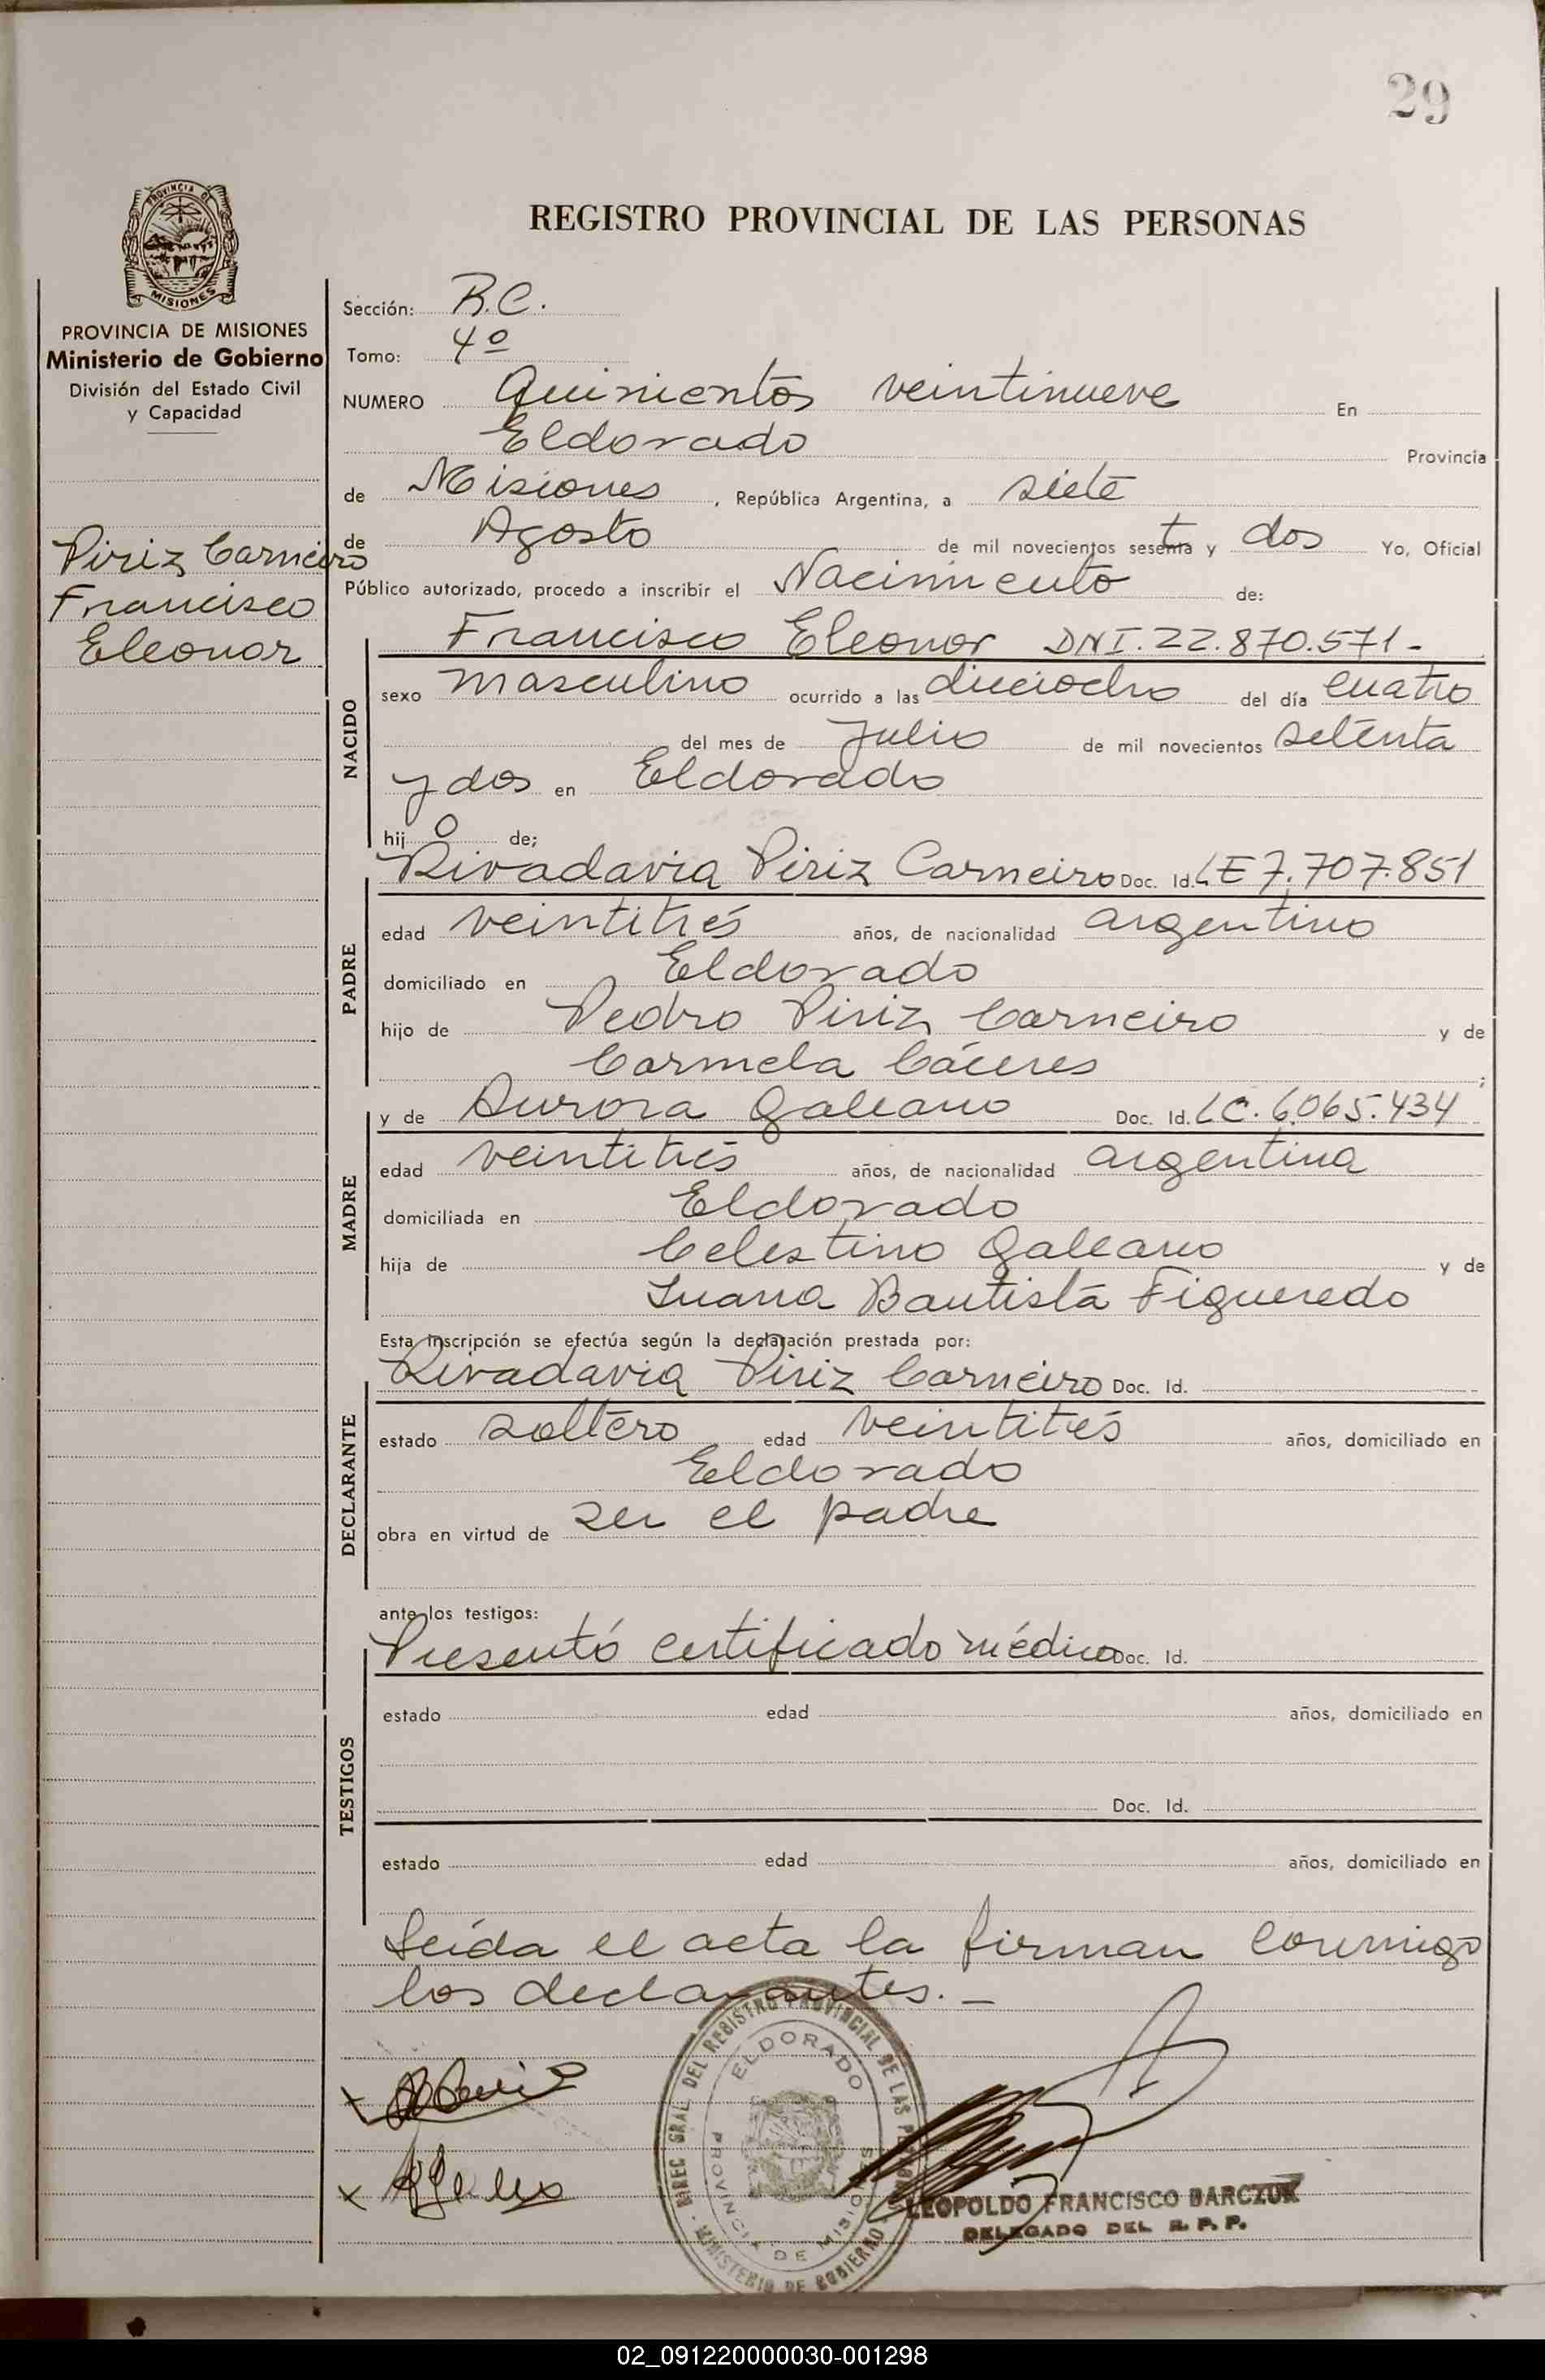 29
PROVINCIA DE
MISIONES
PROVINCIA DE MISIONES
Ministerio de Gobierno
División del Estado Civil
y Capacidad
Piriz Carneiro
Francisco
Eleonor
REGISTRO PROVINCIAL DE LAS PERSONAS
Sección: R.C.
Tomo: 4º
NUMERO Quinientos veintinueve En
Eldorado Provincia
de Misiones, República Argentina, a siete
de Agosto de mil novecientos sesenta y dos Yo, Oficial
Público autorizado, procedo a inscribir el Nacimiento de:
NACIDO
Francisco Eleonor DNI. 22.870.571-
sexo masculino ocurrido a las dieciocho del día cuatro
del mes de Julio de mil novecientos setenta
y dos en Eldorado
hij o de;
PADRE
Rivadavia Piriz Carneiro Doc. Id. LE 7.707.851
edad veintitrés años, de nacionalidad argentino
domiciliado en Eldorado
hijo de Pedro Piriz Carneiro y de
Carmela Cáceres ;
MADRE
y de Aurora Galeano Doc. Id. LC. 6.065.434
edad veintitrés años, de nacionalidad argentina
domiciliada en Eldorado
hija de Celestino Galeano y de
Juana Bautista Figueredo
Esta inscripción se efectúa según la declaración prestada por:
DECLARANTE
Rivadavia Piriz Carneiro Doc. Id.
estado soltero edad veintitrés años, domiciliado en
Eldorado
obra en virtud de ser el padre
ante los testigos:
TESTIGOS
Presentó certificado médico Doc. Id.
estado edad años, domiciliado en
Doc. Id.
estado edad años, domiciliado en
Leída el acta la firman conmigo
los declarantes. —
DIREC GRAL DEL REGISTRO PROVINCIAL DE LAS PERSONAS
ELDORADO
PROVINCIA DE MISIONES
MINISTERIO DE GOBIERNO
LEOPOLDO FRANCISCO BARCZUK
DELEGADO DEL R. P. P.
02_091220000030-001298